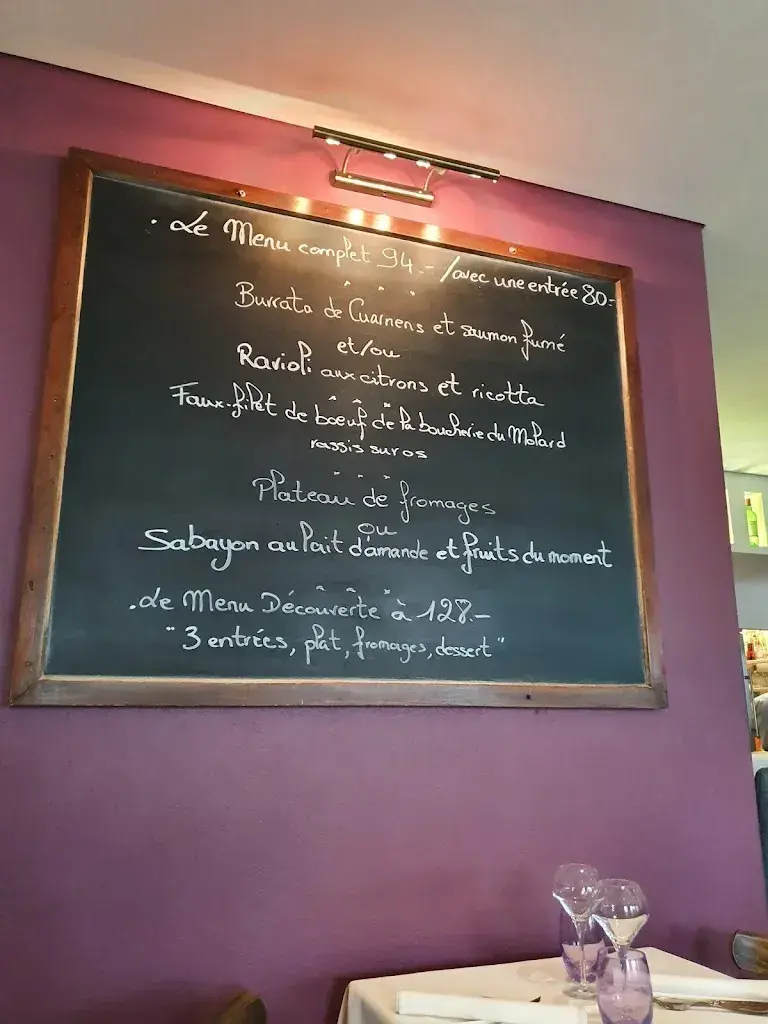 . Le Menu complet 94.- / avec une entrée 80.-
Burrata de Cuarnens et saumon fumé
et/ou
Ravioli aux citrons et ricotta
Faux-filet de bœuf de la boucherie du Molard
rassis sur os
Plateau de fromages
ou
Sabayon au lait d'amande et fruits du moment
. Le Menu Découverte à 128.-
"3 entrées, plat, fromages, dessert"